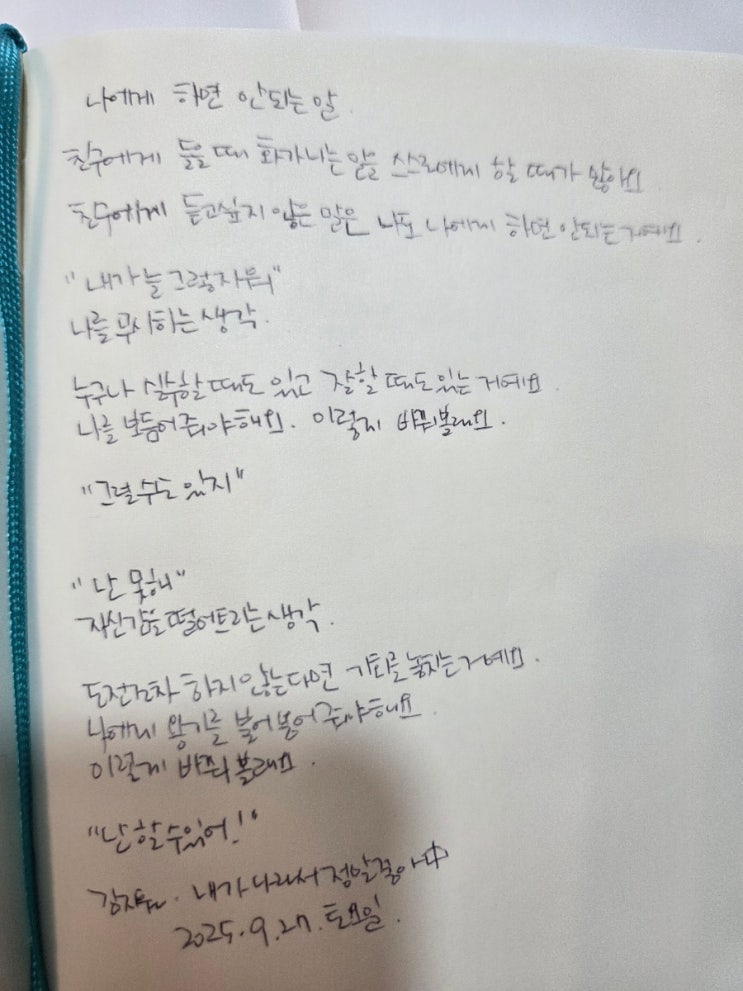 나에게 하면 안되는 말.
친구에게 들을 때 화가나는 말을 스스로에게 할 때가 많아요
친구에게 듣고싶지 않은 말은 나도 나에게 하면 안되는거예요.
"내가 늘 그렇지뭐"
나를 무시하는 생각.
누구나 실수할 때도 있고 잘할 때도 있는 거예요.
나를 보듬어줘야해요. 이렇게 바꿔볼래요.
"그럴 수도 있지"
"난 못해"
자신감을 떨어트리는 생각.
도전조차 하지 않는다면 기회를 놓치는거예요.
나에게 용기를 불어넣어 줘야해요.
이렇게 바꿔 볼래요.
"난 할 수 있어!"
내가 나라서 정말 좋아
2025. 9. 27. 토요일.